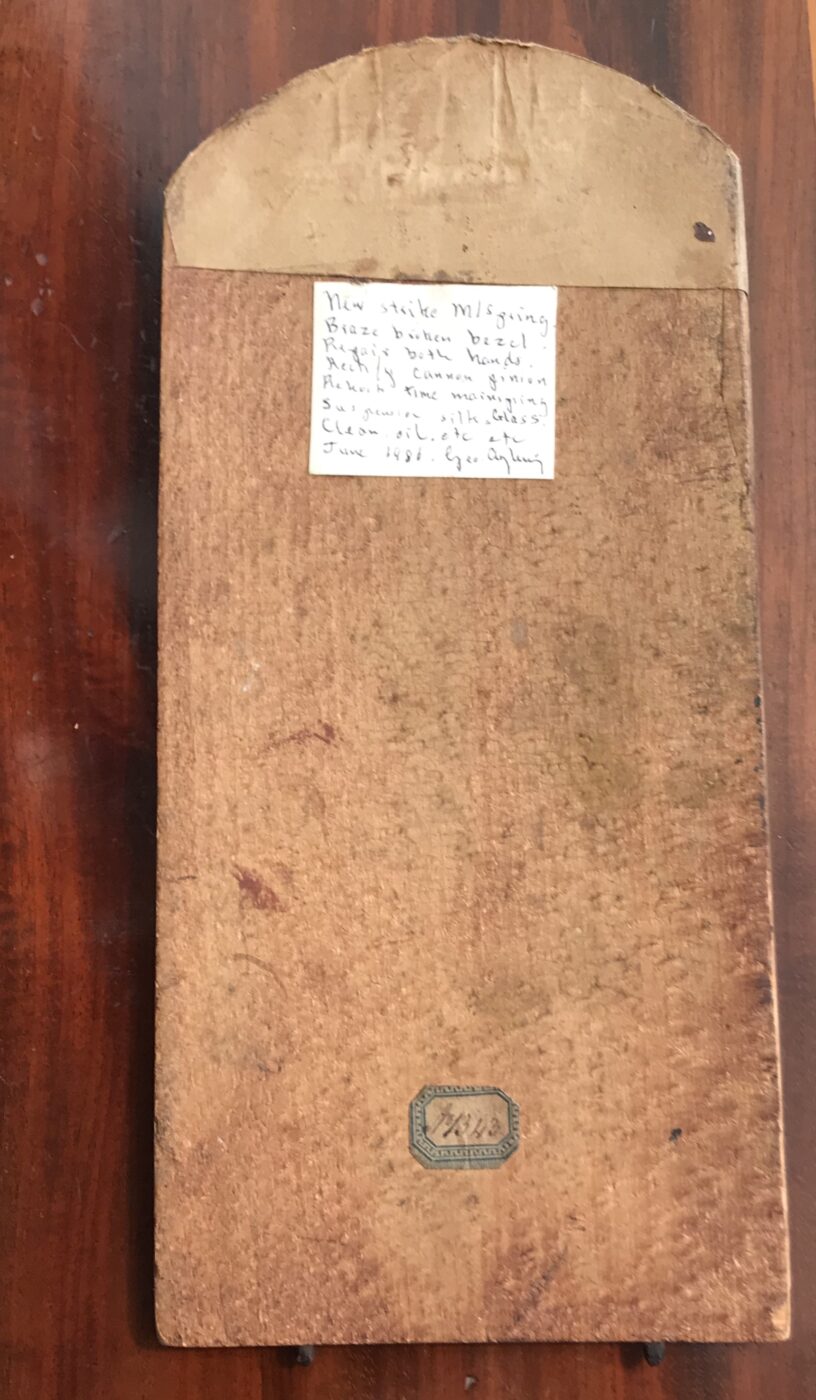 New strike M/Spring.
Braze broken bezel.
Repair both hands.
Rectify cannon pinion
Rehook time mainspring
Suspension silk. Glass.
Clean. oil. etc etc
June 1981. Geo
1343